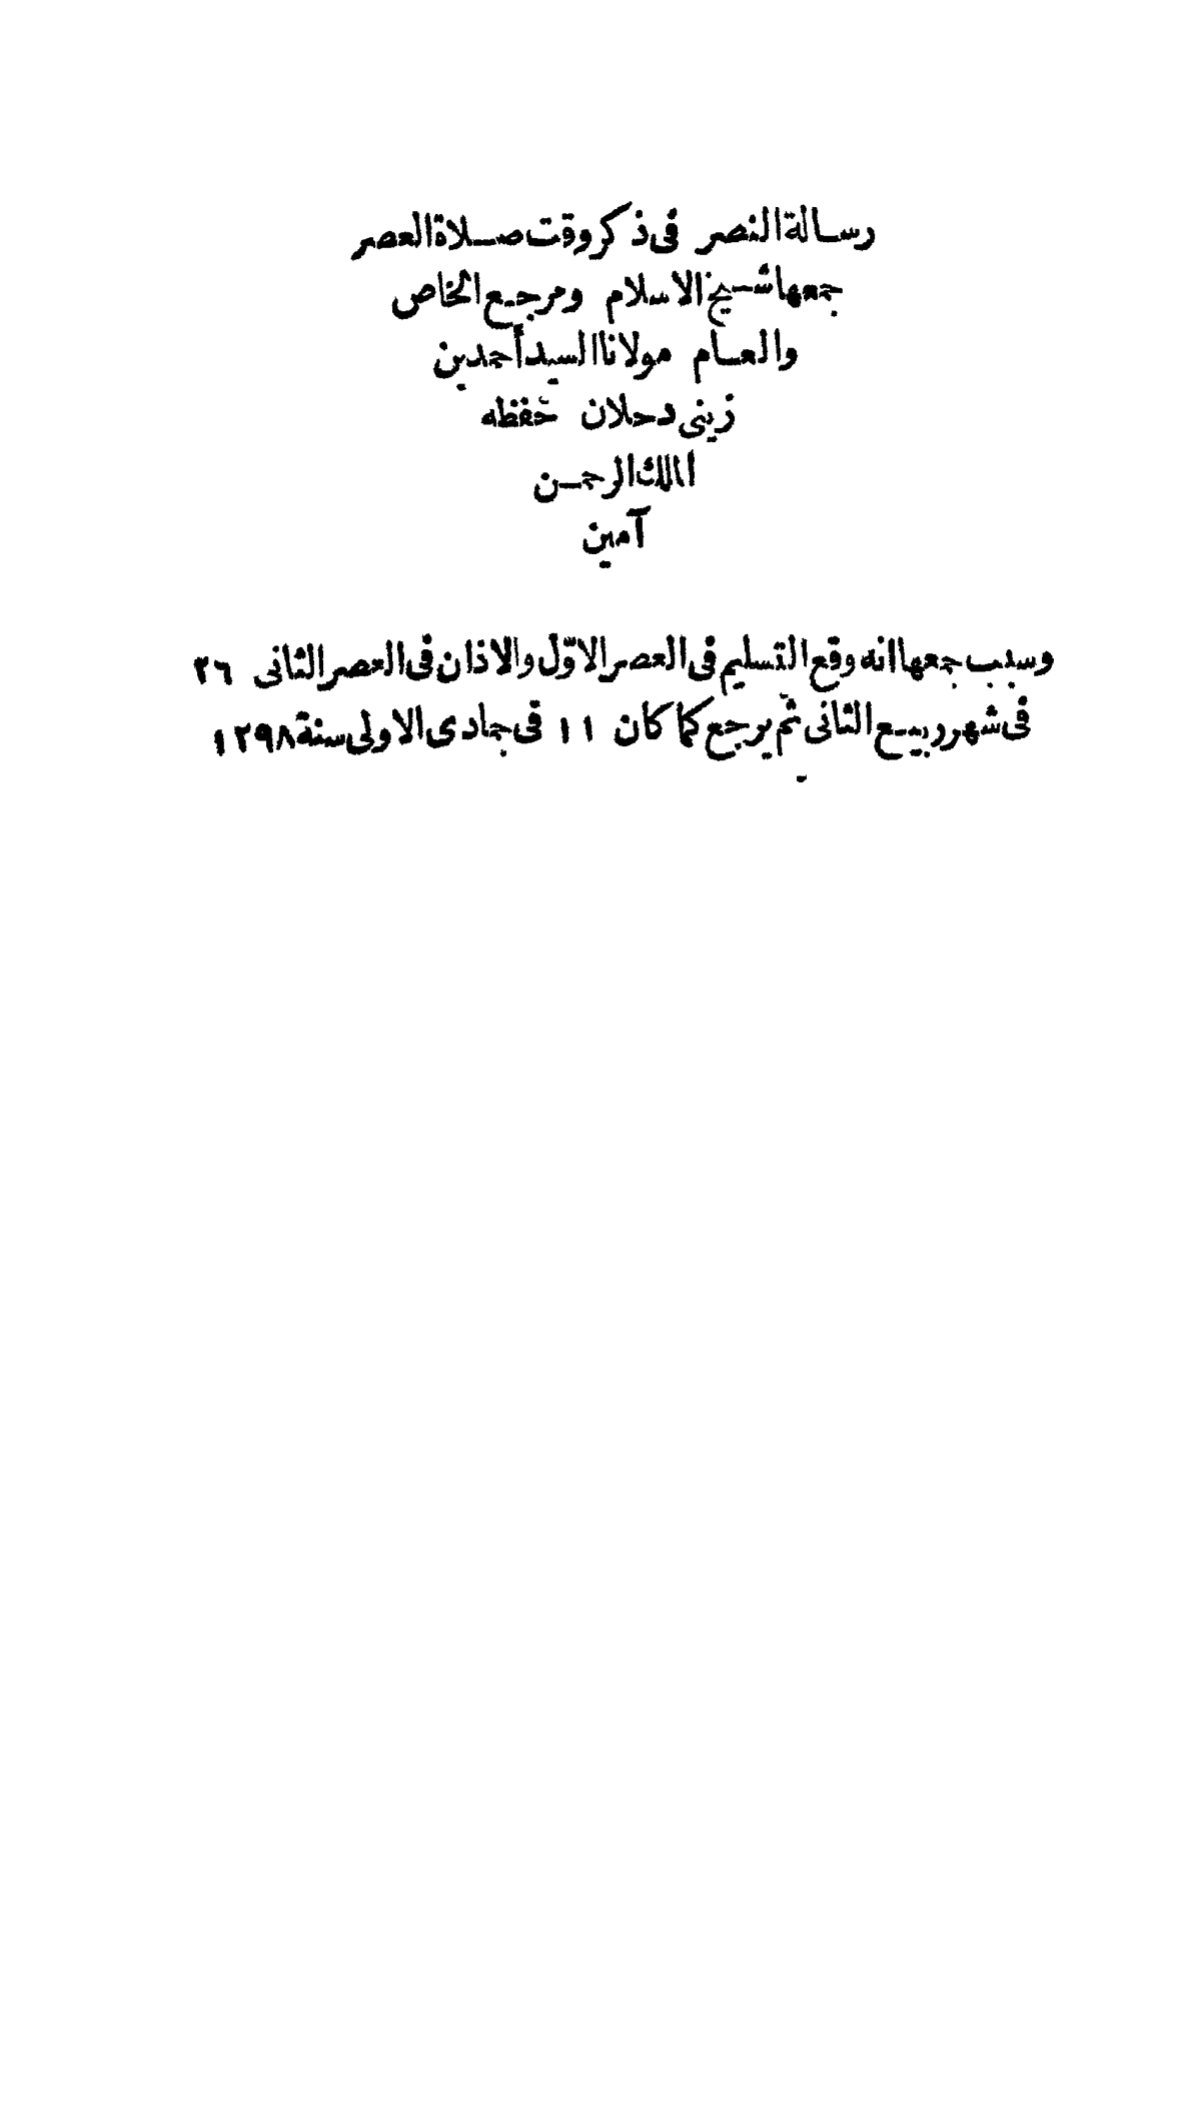 رسالة النصر فى ذكر وقت صلاة العصر
جمعها شيخ الاسلام ومرجع الخاص
والعام مولانا السيد أحمد بن
زينى دحلان حفظه
المالك الرحمن
آمين
وسبب جمعها انه وقع التسليم فى العصر الاوّل والاذان فى العصر الثانى ٢٦
فى شهر ربيع الثانى ثم يرجع كما كان ١١ فى جادى الاولى سنة ١٢٩٨